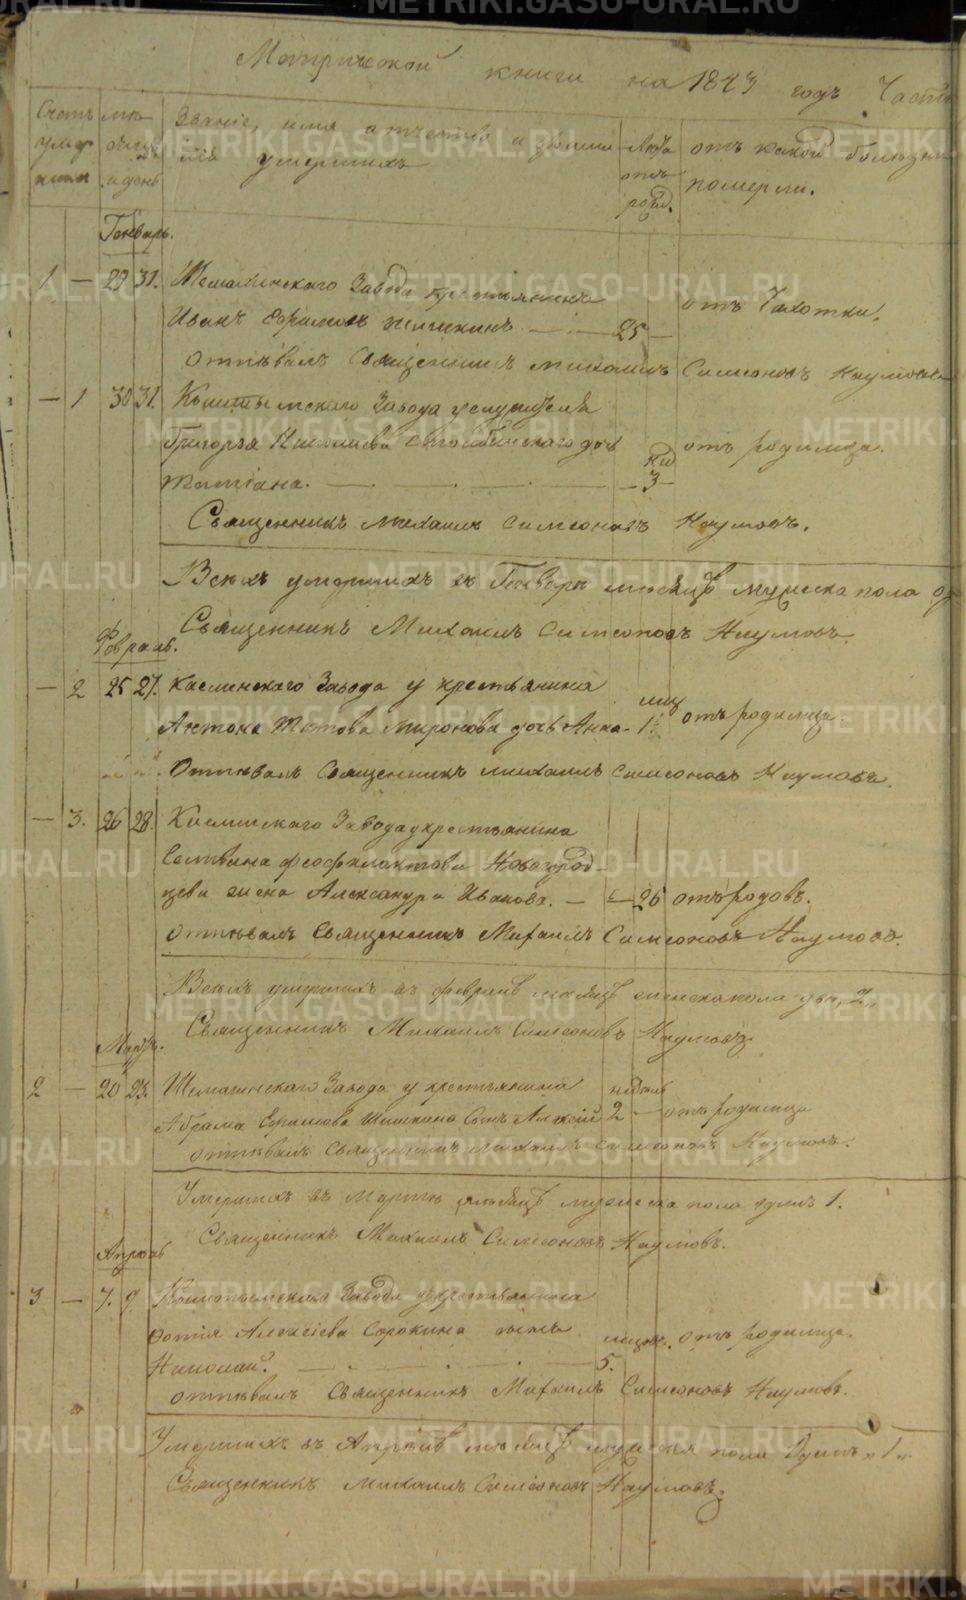 Метрической книги на 1843 годъ Часть
Счетъ умершихъ
мѣсяцъ и день
Званіе, имя отчество и фамилія умершихъ
Лѣта отъ рожд.
отъ какой болѣзни померли.
Генварь.
1 — 29 31. Шемахинскаго Завода крестьянинъ
Иванъ Ефримовъ Шишкинъ — 25 — отъ Чахотки.
Отпѣвалъ Священникъ Михаилъ Симеоновъ Наумовъ
— 1 30 31. Кыштымскаго Завода у служителя
Григорья Николаева дочь
Татіана. — — — нед 3 — отъ родимца.
Священникъ Михаилъ Симеоновъ Наумовъ.
Всѣхъ умершихъ въ Генварѣ мѣсяцѣ мужеска пола
Священникъ Михаилъ Симеоновъ Наумовъ.
Февраль.
— 2 25 27. Каслинскаго Завода у крестьянина
Антона Титова Миронова дочь Анна — 1 отъ родимца.
Отпѣвалъ Священникъ Михаилъ Симеоновъ Наумовъ.
— 3. 26 28. Каслинскаго Завода у крестьянина
Феофилактова Новогород
цева жена Александра Иванова. — 26 отъ родовъ.
Отпѣвалъ Священникъ Михаилъ Симеоновъ Наумовъ.
Всѣхъ умершихъ въ февралѣ мѣсяцѣ женска пола 2
Священникъ Михаилъ Симеоновъ Наумовъ
Мартъ.
2 — 20 23. Шемахинскаго Завода у крестьянина
Абрама Ефимова Шишкина Сынъ Алексій 2 — отъ родимца
Отпѣвалъ Священникъ Михаилъ Симеоновъ Наумовъ.
Умершихъ въ Мартѣ мѣсяцѣ мужеска пола одинъ 1.
Священникъ Михаилъ Симеоновъ Наумовъ.
Апрель
3 — 7. 9. Кыштымскаго Завода у крестьянина
Фотія Алексіева Сорокина сынъ
Николай. — — — 5. отъ родимца.
Отпѣвалъ Священникъ Михаилъ Симеоновъ Наумовъ.
Умершихъ въ Апрелѣ мѣсяцѣ мужеска пола одинъ 1
Священникъ Михаилъ Симеоновъ Наумовъ.
METRIKI.GASO-URAL.RU